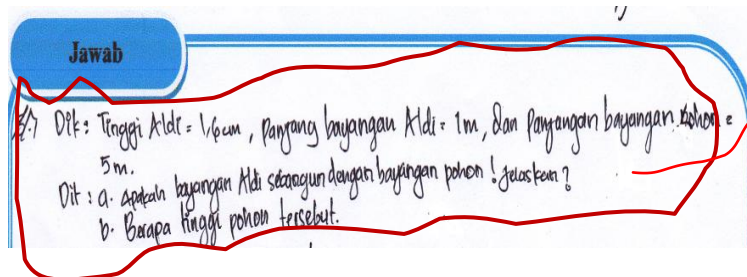 Jawab
Dik: Tinggi Aldi = 1,6 cm, panjang bayangan Aldi = 1m, dan panjangan bayangan pohon =
5m.
Dit: a. Apakah bayangan Aldi sebangun dengan bayangan pohon! Jelaskan?
b. Berapa tinggi pohon tersebut.